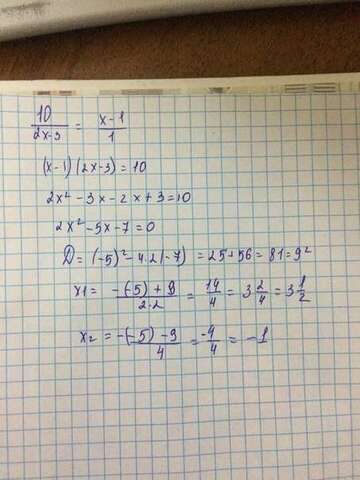 10/(2x-3) = (x-1)/1
(x-1)(2x-3)=10
2x²-3x-2x+3=10
2x²-5x-7=0
D=(-5)²-4·2(-7)=25+56=81=9²
x1=(-(-5)+9)/(2·2)=14/4=3 2/4=3 1/2
x2=(-(-5)-9)/4=-4/4=-1